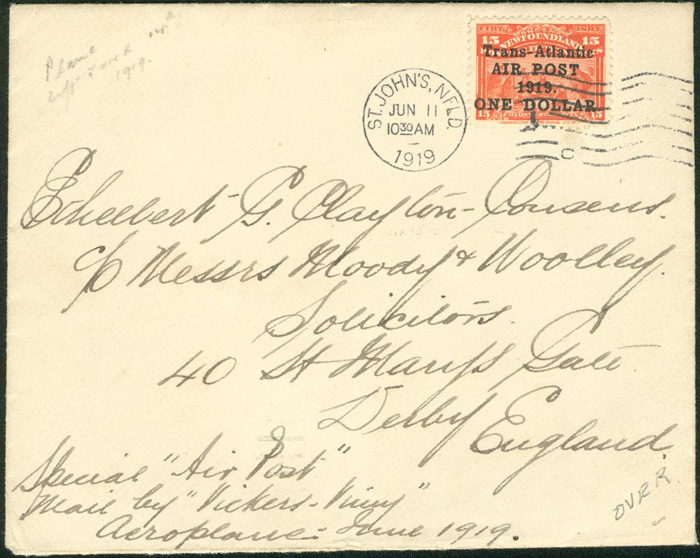 Plane
1919.
15 NEWFOUNDLAND 15
Trans-Atlantic
AIR POST
1919.
ONE DOLLAR.
15 15
ST. JOHN'S, NFLD.
JUN 11
10 30 AM
1919
C
Ethelbert G. Clayton-Cousens.
c/o Messrs Moody & Woolley.
Solicitors.
40 St Mary's Gate.
Derby
England.
Special "Air Post"
Mail by "Vickers-Vimy"
Aeroplane - June 1919.
OVR R.